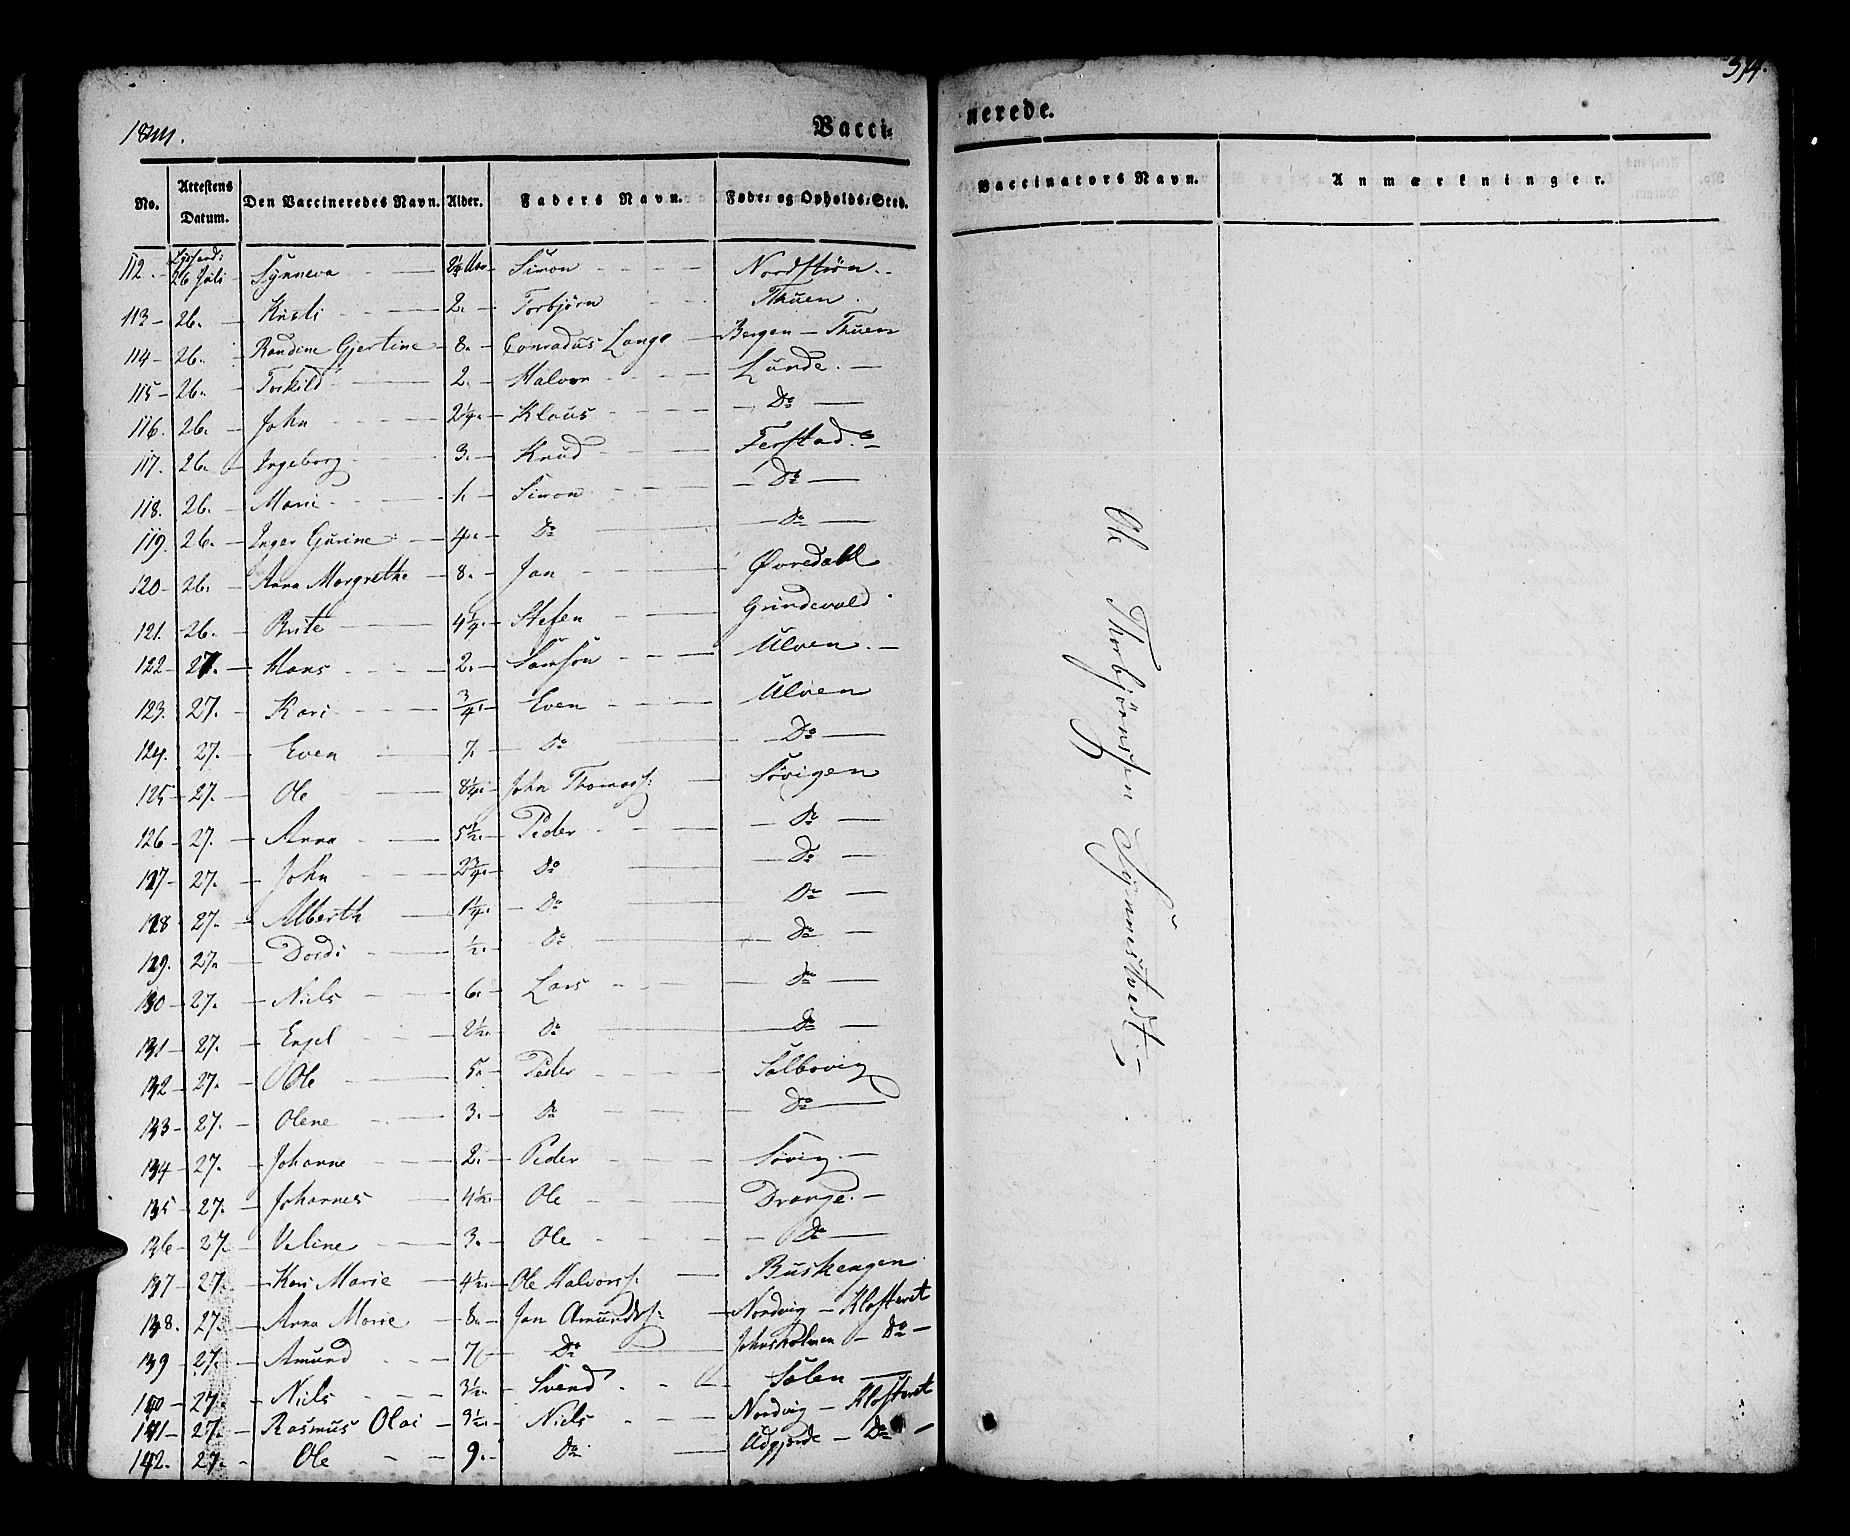 1844.
Vacci=
nerede.
374.
No.
Attestens Datum.
Den Vaccineredes Navn.
Alder.
Faders Navn.
Føde- og Opholds-Sted.
Vaccinators Navn.
Anmærkninger.
112. 26 Juli Synneva Simon Nordstrøn.
113 26. Kristi 2. Torbjørn Thuen.
114 26. Randine Gjertine 8. Conradus Lange Bergen - Thuen
115 26. Torkild 2. Halvor Lunde.
116. 26. John 2 1/4. Klaus Do
117. 26. Ingeborg 3. Knud Ferstad.
118. 26. Marie 1. Simon Do
119. 26. Inger Gurine 4. Do Do
120 26. Anna Margrethe 8. Jan Øvredahl
121. 26. Brite 4 1/4. Stefen Grindevald
122 27. Hans 2. Samson Ulven.
123. 27. Kari 3/4. Even Ulven
124. 27. Even 7. Do Do
125 27. Ole 8 1/4. John Thomass: Søvigen
126 27. Anna 5 1/2. Peder Do
127 27. John 2 3/4. Do Do
128 27. Alberth 1 1/4. Do Do
129. 27. Dordi 1/2. Do Do
130 27. Niels 6. Lars Do
131 27. Engel 2 1/2. Do Do
132 27. Ole 5. Peder Salbovig
133 27. Olene 3. Do Do
134 27. Johanne 2. Peder Søvig.
135 27. Johannes 4 1/2. Ole Drange.
136 27. Veline 3. Ole Do
137 27. Kari Marie 4 1/2. Ole Halvors: Buskengen
138. 27. Anna Marie 8. Jan Amunds: Nordvig - Klosteret
139 27. Amund 7 Do Johnsholmen - Do
140 27. Niels 3 1/2. Svend Solen
141 27. Rasmus Olai 9 1/2. Niels Nordvig - Klosteret
142. 27. Ole 9. Do Udgjørde - Do
Ole Thorbjørnssen Synnestvedt.